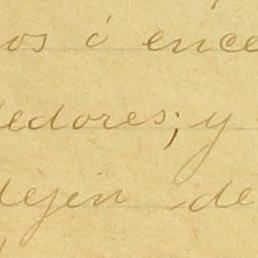 os ó ence
dedores; y
dejen de